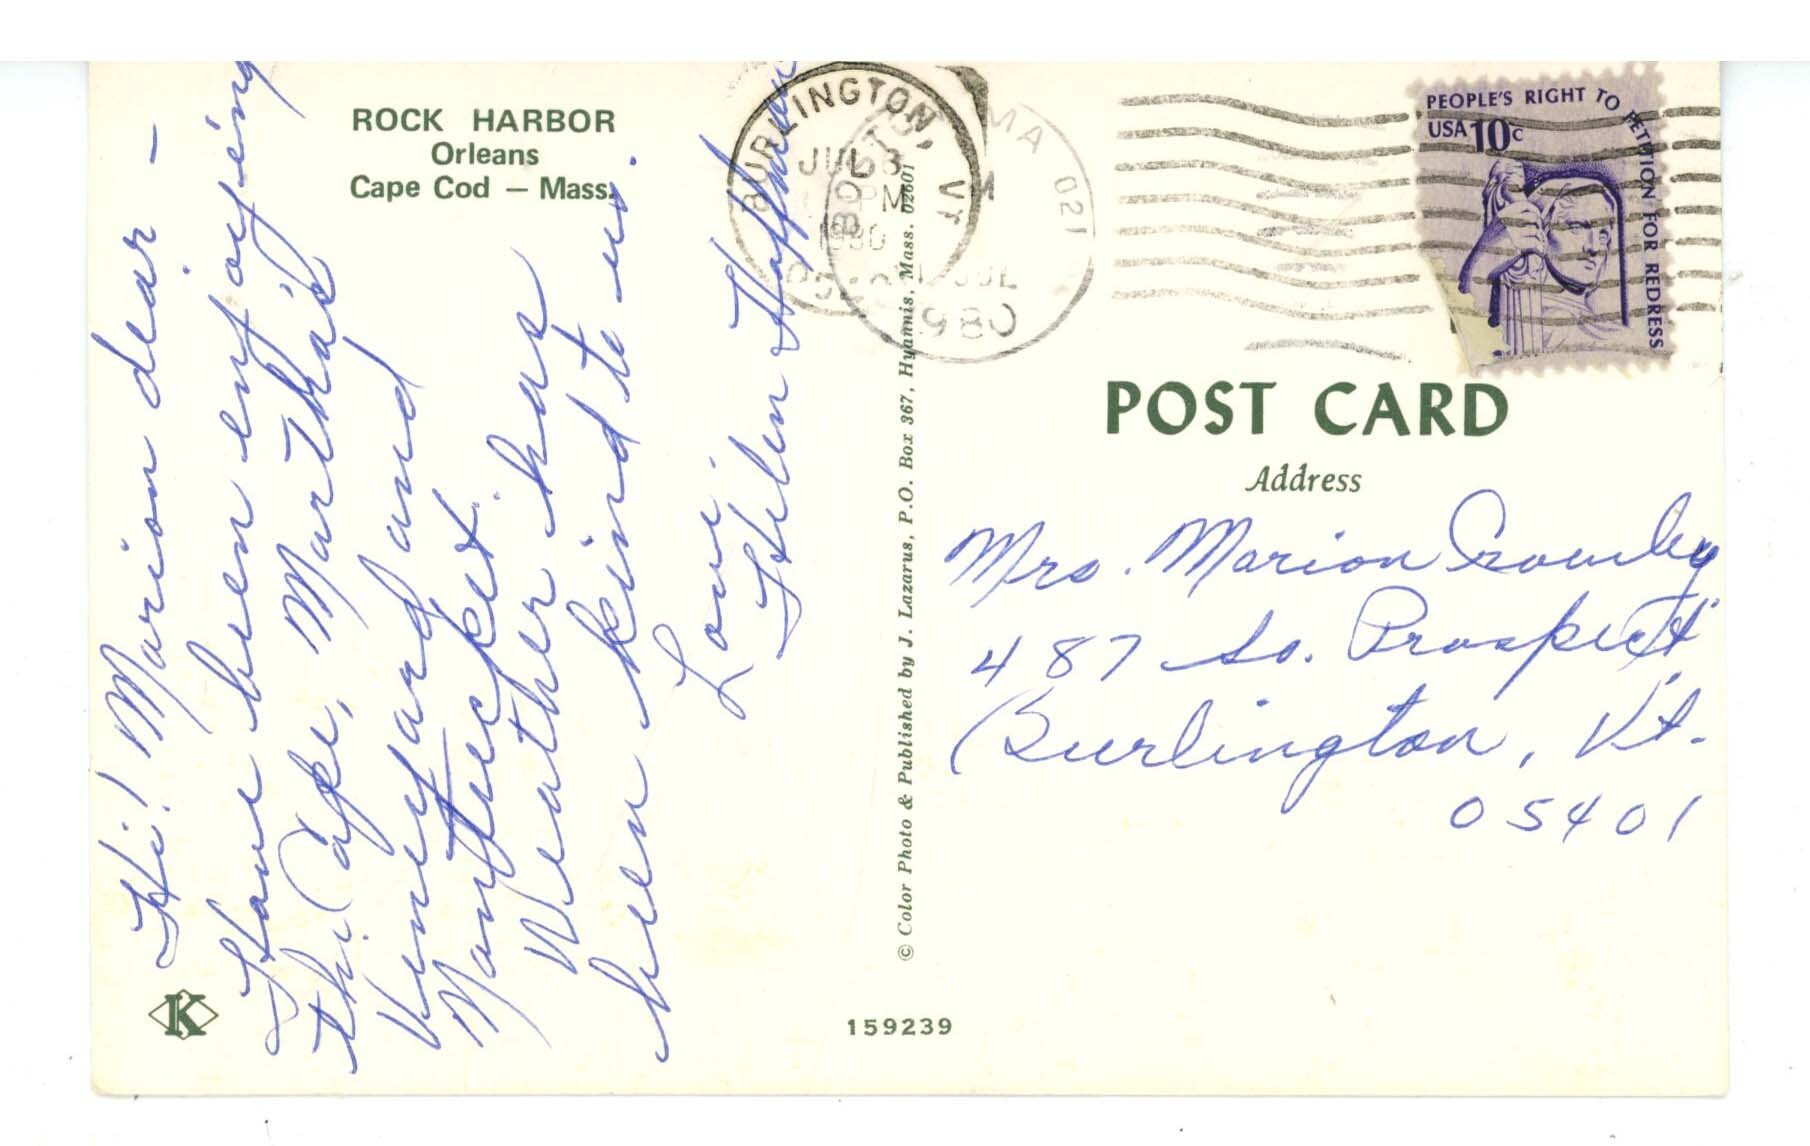 ROCK HARBOR
Orleans
Cape Cod — Mass.
Hi! Marion dear —
Have been enjoying
the Cape, Martha's
Vineyard and
Nantucket.
Weather has
been kind to us.
Love,
Helen Hoffman
K
© Color Photo & Published by J. Lazarus, P.O. Box 367, Hyannis, Mass. 02601
159239
BURLINGTON, VT
JUL 3
PM
1980
BOST MA 021
JUL
1980
PEOPLE'S RIGHT TO PETITION FOR REDRESS
USA 10c
POST CARD
Address
Mrs. Marion Crowley
487 So. Prospect
Burlington, Vt.
05401